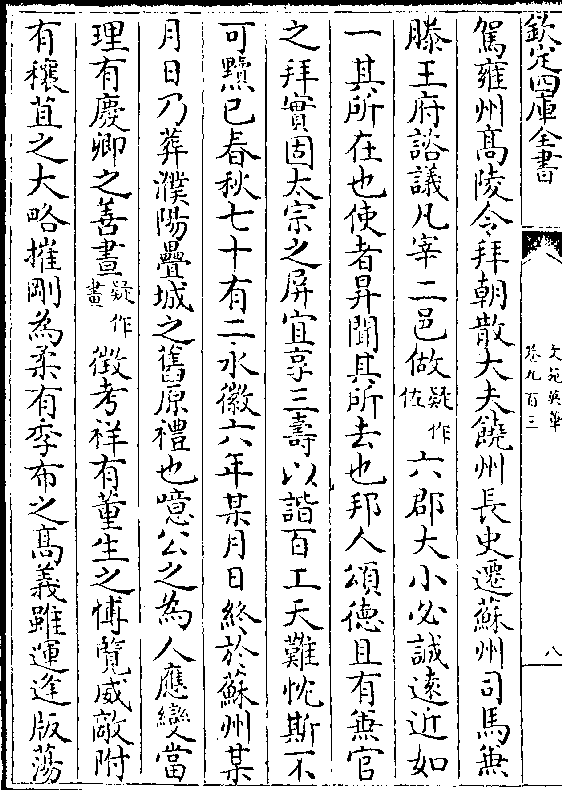 欽定四庫全書
文苑英華
卷九百三
八
駕雍州髙陵令拜朝散大夫饒州長史遷蘇州司馬兼
滕王府諮議凡宰二邑做疑作佐六郡大小必誠逺近如
一其所在也使者昇聞其所去也邦人頌德且有兼官
之拜實固太宗之屏宜享三壽以諧百工天難忱斯不
可黷已春秋七十有二永徽六年某月日終於蘇州某
月日乃葬濮陽疊城之舊原禮也噫公之為人應變當
理有慶卿之善晝疑作畫徴考祥有董生之博覽威敵附
有穰苴之大略摧剛為柔有季布之髙義雖運逢版蕩